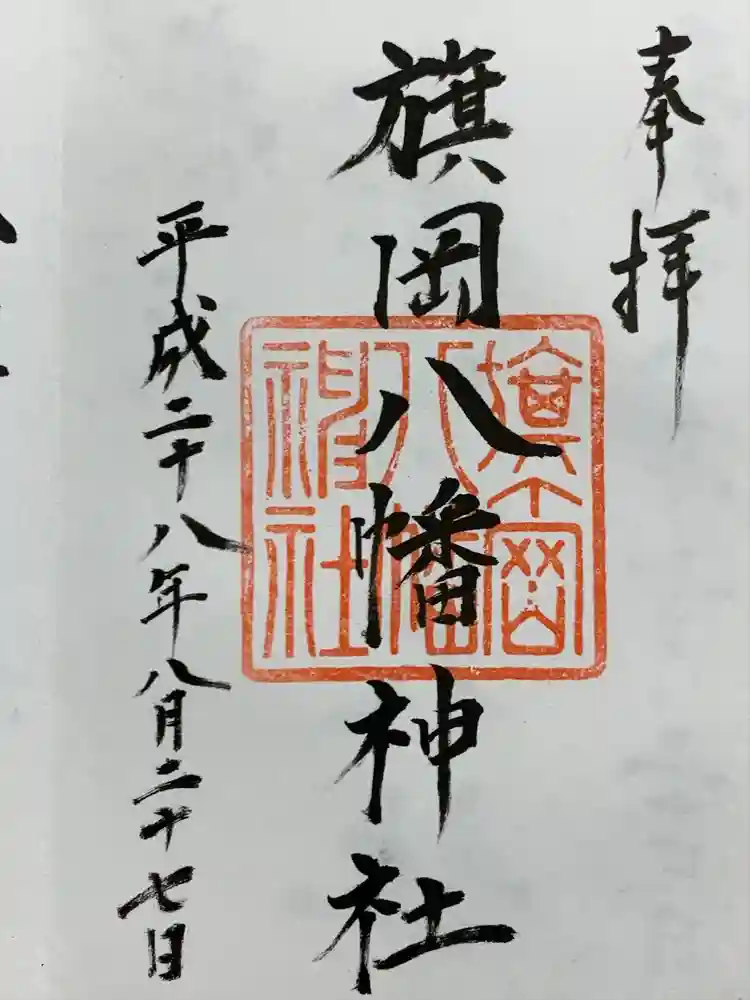 奉拝
旗岡八幡神社
旗岡八幡神社
平成二十八年八月二十七日